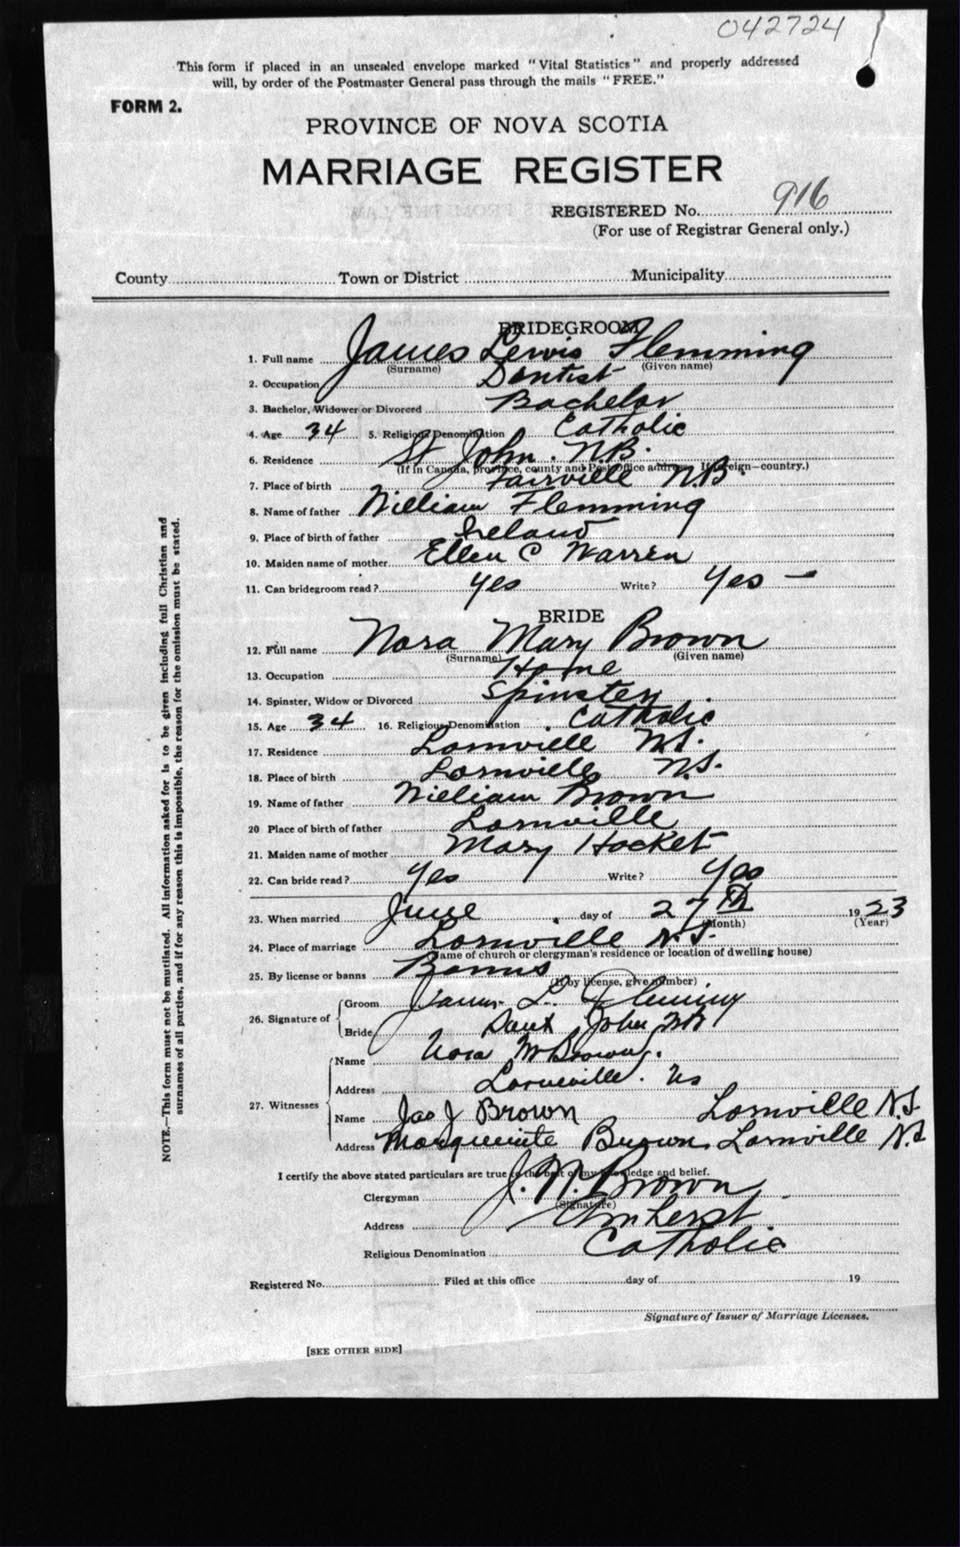 042724
This form if placed in an unsealed envelope marked "Vital Statistics" and properly addressed
will, by order of the Postmaster General pass through the mails "FREE."
FORM 2.
PROVINCE OF NOVA SCOTIA
MARRIAGE REGISTER
REGISTERED No. 916
(For use of Registrar General only.)
County Town or District Municipality
BRIDEGROOM
1. Full name James Lewis Flemming
(Surname) (Given name)
2. Occupation Dentist
3. Bachelor, Widower or Divorced Bachelor
4. Age 34 5. Religious Denomination Catholic
6. Residence St John. N.B.
(If in Canada, province, county and Post Office address. If foreign—country.)
7. Place of birth Fairville N.B.
8. Name of father William Flemming
9. Place of birth of father Ireland
10. Maiden name of mother Ellen C Warren
11. Can bridegroom read? Yes Write? Yes —
BRIDE
12. Full name Nora Mary Brown
(Surname) (Given name)
13. Occupation Home
14. Spinster, Widow or Divorced Spinster
15. Age 34 16. Religious Denomination Catholic
17. Residence Lornville N.S.
18. Place of birth Lornville N.S.
19. Name of father William Brown
20 Place of birth of father Lornville
21. Maiden name of mother Mary Hocket
22. Can bride read? Yes Write? Yes
23. When married June day of 27th 1923
(Month) (Year)
24. Place of marriage Lornville N.S.
(Name of church or clergyman's residence or location of dwelling house)
25. By license or banns Banns
(If by license, give number)
26. Signature of Groom James L. Fleming
Saint John NB
Bride Nora M Brown.
Lorneville. Ns
27. Witnesses Name Address
Name Jas J Brown Lornville N.S
Address Marguerite Brown Lornville N.S
I certify the above stated particulars are true to the best of my knowledge and belief.
Clergyman J. N. Brown
(Signature)
Address Amherst
Religious Denomination Catholic
Registered No. Filed at this office day of 19
Signature of Issuer of Marriage Licenses.
[SEE OTHER SIDE]
NOTE.—This form must not be mutilated. All information asked for is to be given including full Christian and
surnames of all parties, and if for any reason this is impossible, the reason for the omission must be stated.